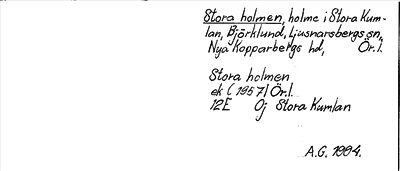 Stora holmen, holme i Stora Kum-
lan, Björklund, Ljusnarsbergs sn,
Nya Kopparbergs hd, Ör.l.
Stora holmen
ek (1957) Ör.l.
12E Oj Stora Kumlan
A.G. 1994.